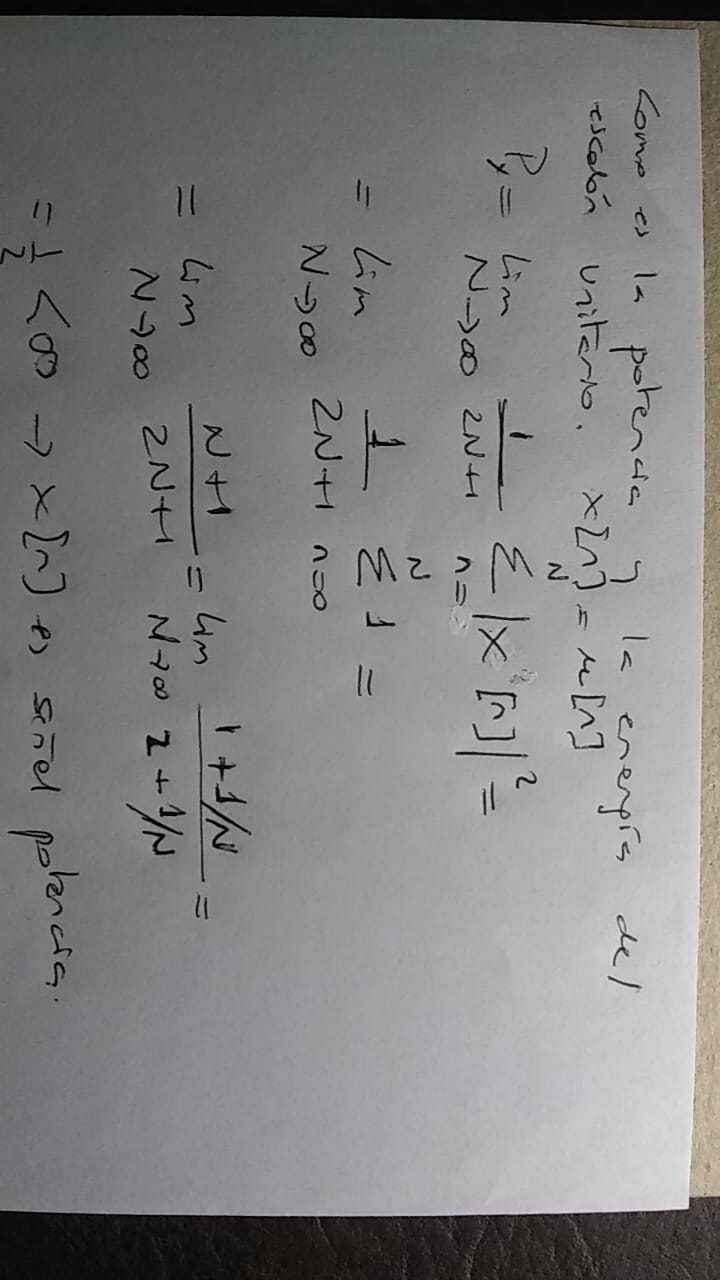 Como es la potencia y la energía del
escalón unitario. x[n] = u[n]
Px = lim N→∞ 1/2N+1 N Σ n= |x[n]|² =
= lim N→∞ 1/2N+1 N Σ n=0 1 =
= lim N→∞ N+1/2N+1 = lim N→∞ 1+1/N/2+1/N =
= 1/2 < ∞ → x[n] es señal potencia.